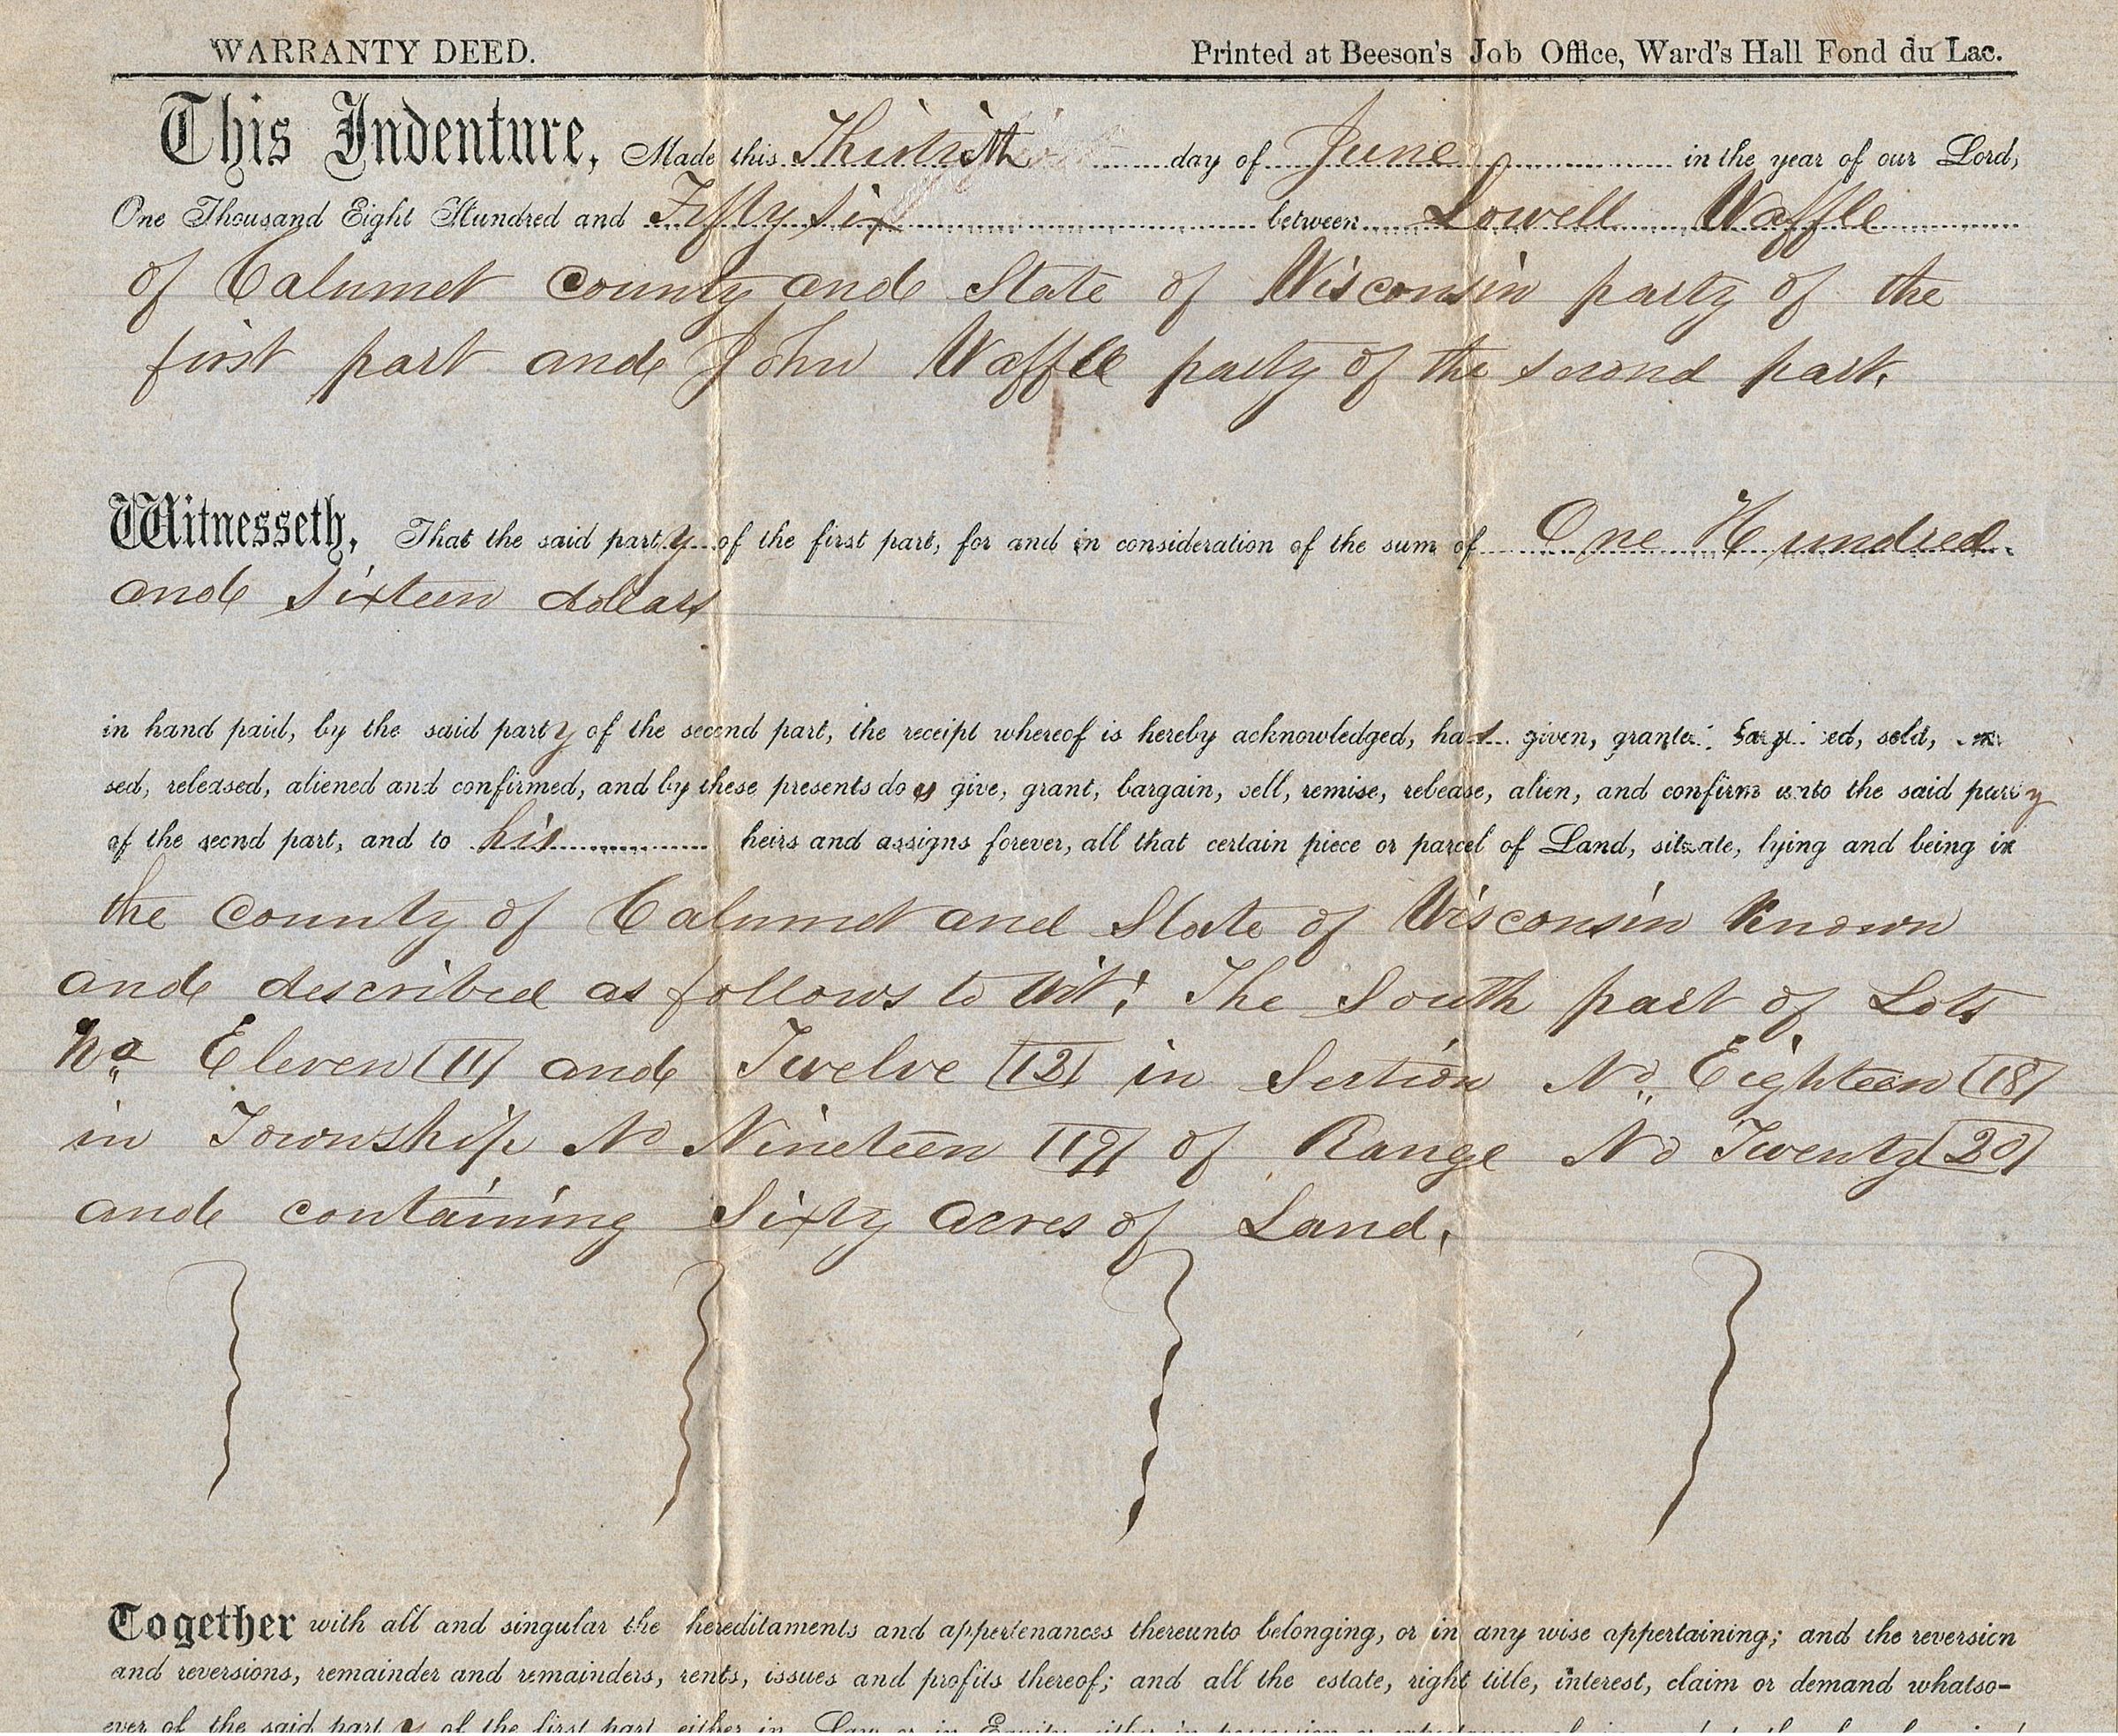 WARRANTY DEED. Printed at Beeson's Job Office, Ward's Hall Fond du Lac.
This Indenture, Made this day of June in the year of our Lord,
One Thousand Eight Hundred and Fifty six between Lowell Waffle
of Calumet County and State of Wisconsin party of the
first part and John Waffle party of the second part.
Witnesseth, That the said party of the first part, for and in consideration of the sum of One Hundred
and Sixteen dollars
in hand paid, by the said party of the second part, the receipt whereof is hereby acknowledged, has given, granted, bargained, sold,
sed, released, aliened and confirmed, and by these presents does give, grant, bargain, sell, remise, release, alien, and confirm unto the said party
of the secnd part, and to his heirs and assigns forever, all that certain piece or parcel of Land, situate, lying and being in
the County of Calumet and State of Wisconsin Known
and described as follows to Wit: The South part of Lots
No Eleven (11) and Twelve (12) in Section No Eighteen (18)
in Township No Nineteen (19) of Range No Twenty (20)
and containing Sixty acres of Land.
Together with all and singular the hereditaments and appertenances thereunto belonging, or in any wise appertaining; and the reversion
and reversions, remainder and remainders, rents, issues and profits thereof; and all the estate, right title, interest, claim or demand whatso-
ever of the said party of the first part, either in Law or in Equity, either in possession or expectancy